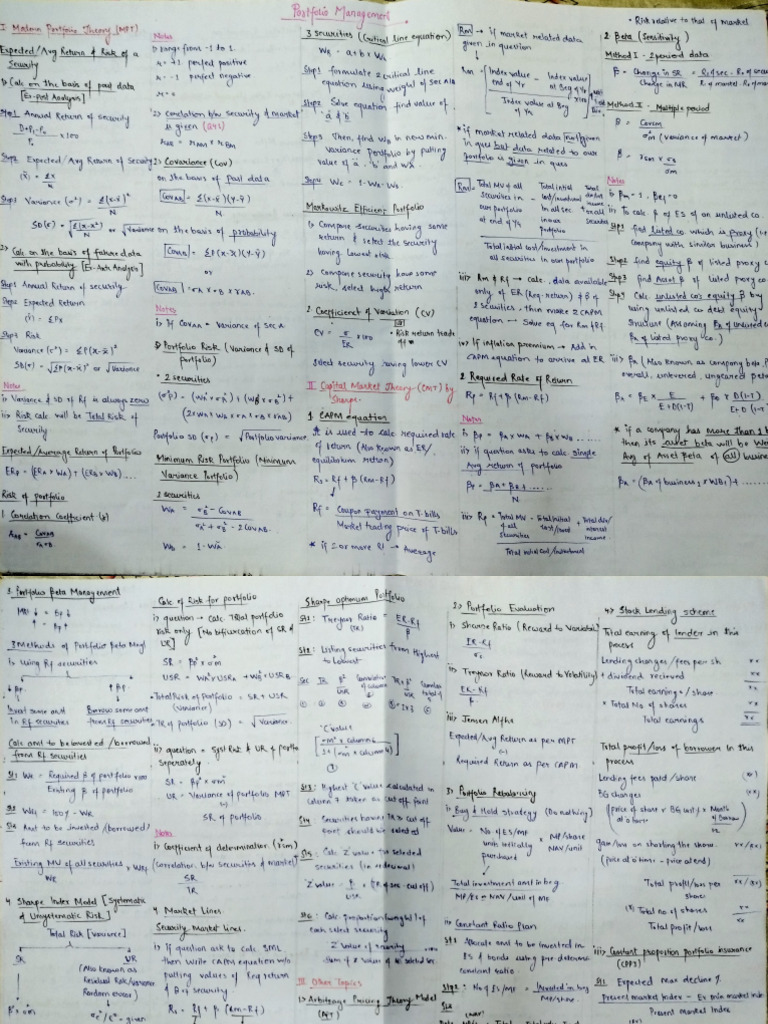 Portfolio Management
I Modern Portfolio Theory (MPT)
Expected/Avg Return & Risk of a
Security
1) Calc on the basis of past data
[Ex-Post Analysis]
Step1 Annual Return of security
D+P₁-P₀ x100
P₀
Step2 Expected/Avg Return of Security
(x̄) = Σx
N
Step3 Variance (σ²) = Σ(x-x̄)²
N
SD(σ) = √Σ(x-x̄)² or √Variance
N
2) Calc on the basis of future data
with probability [Ex-Ante Analysis]
Step1 Annual Return of security
Step2 Expected Return
(x̄) = ΣPx
Step3 Risk
Variance (σ²) = ΣP(x-x̄)²
SD(σ) = √ΣP(x-x̄)² or √Variance
Notes
i) Variance & SD of Rf is always zero
ii) Risk calc will be Total Risk of
Security
Expected/Average Return of Portfolio
ERp = (ERA x WA) + (ERB x WB)....
Risk of portfolio
1 Correlation Coefficient (r)
rAB = CovAB
σA σB
Notes
i) range from -1 to 1.
r = +1 perfect positive
r = -1 perfect negative
r = 0
2) Correlation b/w security & market
is given
rAB = rAM x rBM
2 Covariance (Cov)
on the basis of Past data
CovAB = Σ(x-x̄)(y-ȳ)
N
on the basis of probability
CovAB = ΣP(x-x̄)(y-ȳ)
or
CovAB = σA x σB x rAB
Notes
i) If CovAA = Variance of sec A
3 Portfolio Risk (Variance & SD of
portfolio)
* 2 securities
(σ²p) = (WA² x σA²) + (WB² x σB²) +
(2 x WA x WB x σA x σB x rAB)
Portfolio SD (σp) = √Portfolio variance
Minimum Risk Portfolio (Minimum
Variance Portfolio)
2 securities
WA = σB² - CovAB
σA² + σB² - 2CovAB
WB = 1 - WA
3 securities (Critical line equation)
WB = a + b x WA
Step1 formulate 2 critical line
equation using weight of sec A&B
Step2 Solve equation find value of
'a' & 'b'
Step3 Then, find WB in new min.
variance portfolio by putting
value of 'a', 'b' and WA
Step4 WC = 1-WA-WB
Markowitz Efficient Portfolio
1) Compare securities having same
return & select the security
having lowest risk
2) Compare security have same
risk, select high return
2 Coefficient of Variation (CV)
CV = σ x100
ER
* Risk return trade off
Select security having lower CV
II Capital Market Theory (CMT) by
Sharpe
1 CAPM equation
It is used to calc required rate
of return (Also known as ER/
equilibrium return)
Rs = Rf + β (Rm-Rf)
Rf = Coupon Payment on T-bills
Market trading price of T-bills
* if 2 or more Rf → Average
Rm → if market related data
given in question
Rm = Index value end of Yr - Index value at Beg of Yr
Index value at Beg of Yr
* if market related data not given in
ques but data related to our
portfolio is given in ques
Rm = Total MV of all securities in our own portfolio at end of Yr - Total initial cost/investment in all sec in our portfolio
Total initial cost/investment in
all securities in our portfolio
iii) Rm & Rf → calc. data available
only of ER (Req return) & β of
2 securities, then make 2 CAPM
equation → Solve eq for Rm & Rf
iv) If inflation premium → Add in
CAPM equation to arrive at ER
2 Required Rate of Return
Rp = Rf + β (Rm-Rf)
Notes
i) βp = βA x WA + βB x WB ....
ii) if question asks to calc single
Avg return of portfolio
βp = βA + βB + ......
N
iii) Rp = Total MV of all securities - Total initial cost/invst + Total div/interest income
Total initial cost/investment
* Risk relative to that of market
2 Beta (Sensitivity)
Method I - 2 period data
β = Change in SR
Change in MR
Method II - Multiple period
β = Covsm
σ²m (variance of market)
β = rsm x σs
σm
Notes
i) βm = 1, βRf = 0
ii) To calc β of ES of an unlisted co
Step1 find listed co which is proxy (i.e.
company with similar business)
Step2 find equity β of listed proxy co
Step3 find Asset β of listed proxy co
Step4 Calc unlisted co's equity β by
using unlisted co debt equity
βA = βE x E + βD x D(1-T)
E+D(1-T) E+D(1-T)
* if a company has more than 1 business
then its asset beta will be
Avg of Asset Beta of all business
3 Portfolio Beta Management
3 Methods of Portfolio Beta Mngt
1) using Rf securities
Invest some amt
in Rf securities
Borrow some amt
from Rf securities
Calc amt to be invested/borrowed
from Rf securities
S1 WE = Required β of portfolio x100
Existing β of portfolio
S2 WRf = 100% - WE
S3 Amt to be invested (borrowed)
from Rf securities
Existing MV of all securities x WRf
WE
4 Sharpe Index Model [Systematic
& Unsystematic Risk]
Total Risk [Variance]
SR
UR
(Also known as
Residual Risk/variance
Random error)
β² x σ²m
Calc of Risk for portfolio
i) question → Calc Total portfolio
risk only [No bifurcation of SR &
UR]
SR = βp² x σ²m
USR = WA² x USRA + WB² x USRB
* Total Risk of Portfolio = SR + USR
(Variance)
* TR of portfolio (SD) = √Variance
ii) question → Syst Risk & UR of portfo
Seperately
SR = βp² x σ²m
UR = Variance of portfolio MPT
(-)
SR of portfolio
Note
1) Coefficient of determination (r²sm)
(Correlation b/w securities & market)²
SR
TR
4 Market Lines
Security Market Lines.
i) If question ask to calc SML
then write CAPM equation w/o
putting values of Req return
& β of security
Rs = Rf + β (Rm-Rf)
Sharpe optimum Portfolio
St1: Treynor Ratio = ER-Rf
(TR) β
St2: Listing securities from Highest
to lowest
'C' value
St3: Highest 'C' value calculated in
column & taken as cut off point
St4: Securities having TR > cut off
point should be selected
St5: Calc Z value for selected
securities (in decimal)
Z value = β x (TR of sec - cut off)
UR
St6: Calc proportion (weight) of
each select security
Z value of security
Sum of Z value of all selected sec
III Other Topics
1) Arbitrage Pricing Theory Model
(APT)
2) Portfolio Evaluation
i) Sharpe Ratio (Reward to Variability)
ER-Rf
σs
ii) Treynor Ratio (Reward to Volatility)
ER-Rf
β
iii) Jensen Alpha
Expected/Avg Return as per MPT
(-)
Required Return as per CAPM
3) Portfolio Rebalancing
i) Buy & Hold Strategy (Do nothing)
Value = No of ES/MF units initially purchased x MP/share NAV/unit
Total investment amt in beg
MP/ES or NAV/unit of MF
ii) Constant Ratio Plan
St1 Allocate amt to be invested in
ES & bonds using pre determine
constant ratio
St2: No of ES/MF = Invested in beg
MP/share
4) Stock Lending scheme
Total earning of lender in this
process
Lending charges/fees per sh xx
+ dividend recieved xx
Total earnings/share xx
x Total No of shares xx
Total earnings xx
Total profit/loss of borrower in this
process
Lending fees paid/share (xx)
BG charges (xx)
(price of share x BG unit% x Month of Borrow / 12)
gain/loss on shorting the share xx/(xx)
(price at 0 time - price at end)
Total profit/loss per xx/(xx)
share
(x) Total no of shares xx
Total profit/loss
iii) Constant proportion portfolio insurance
(CPPI)
S1 Expected max decline %
Present market index - Es min market index
Present market index